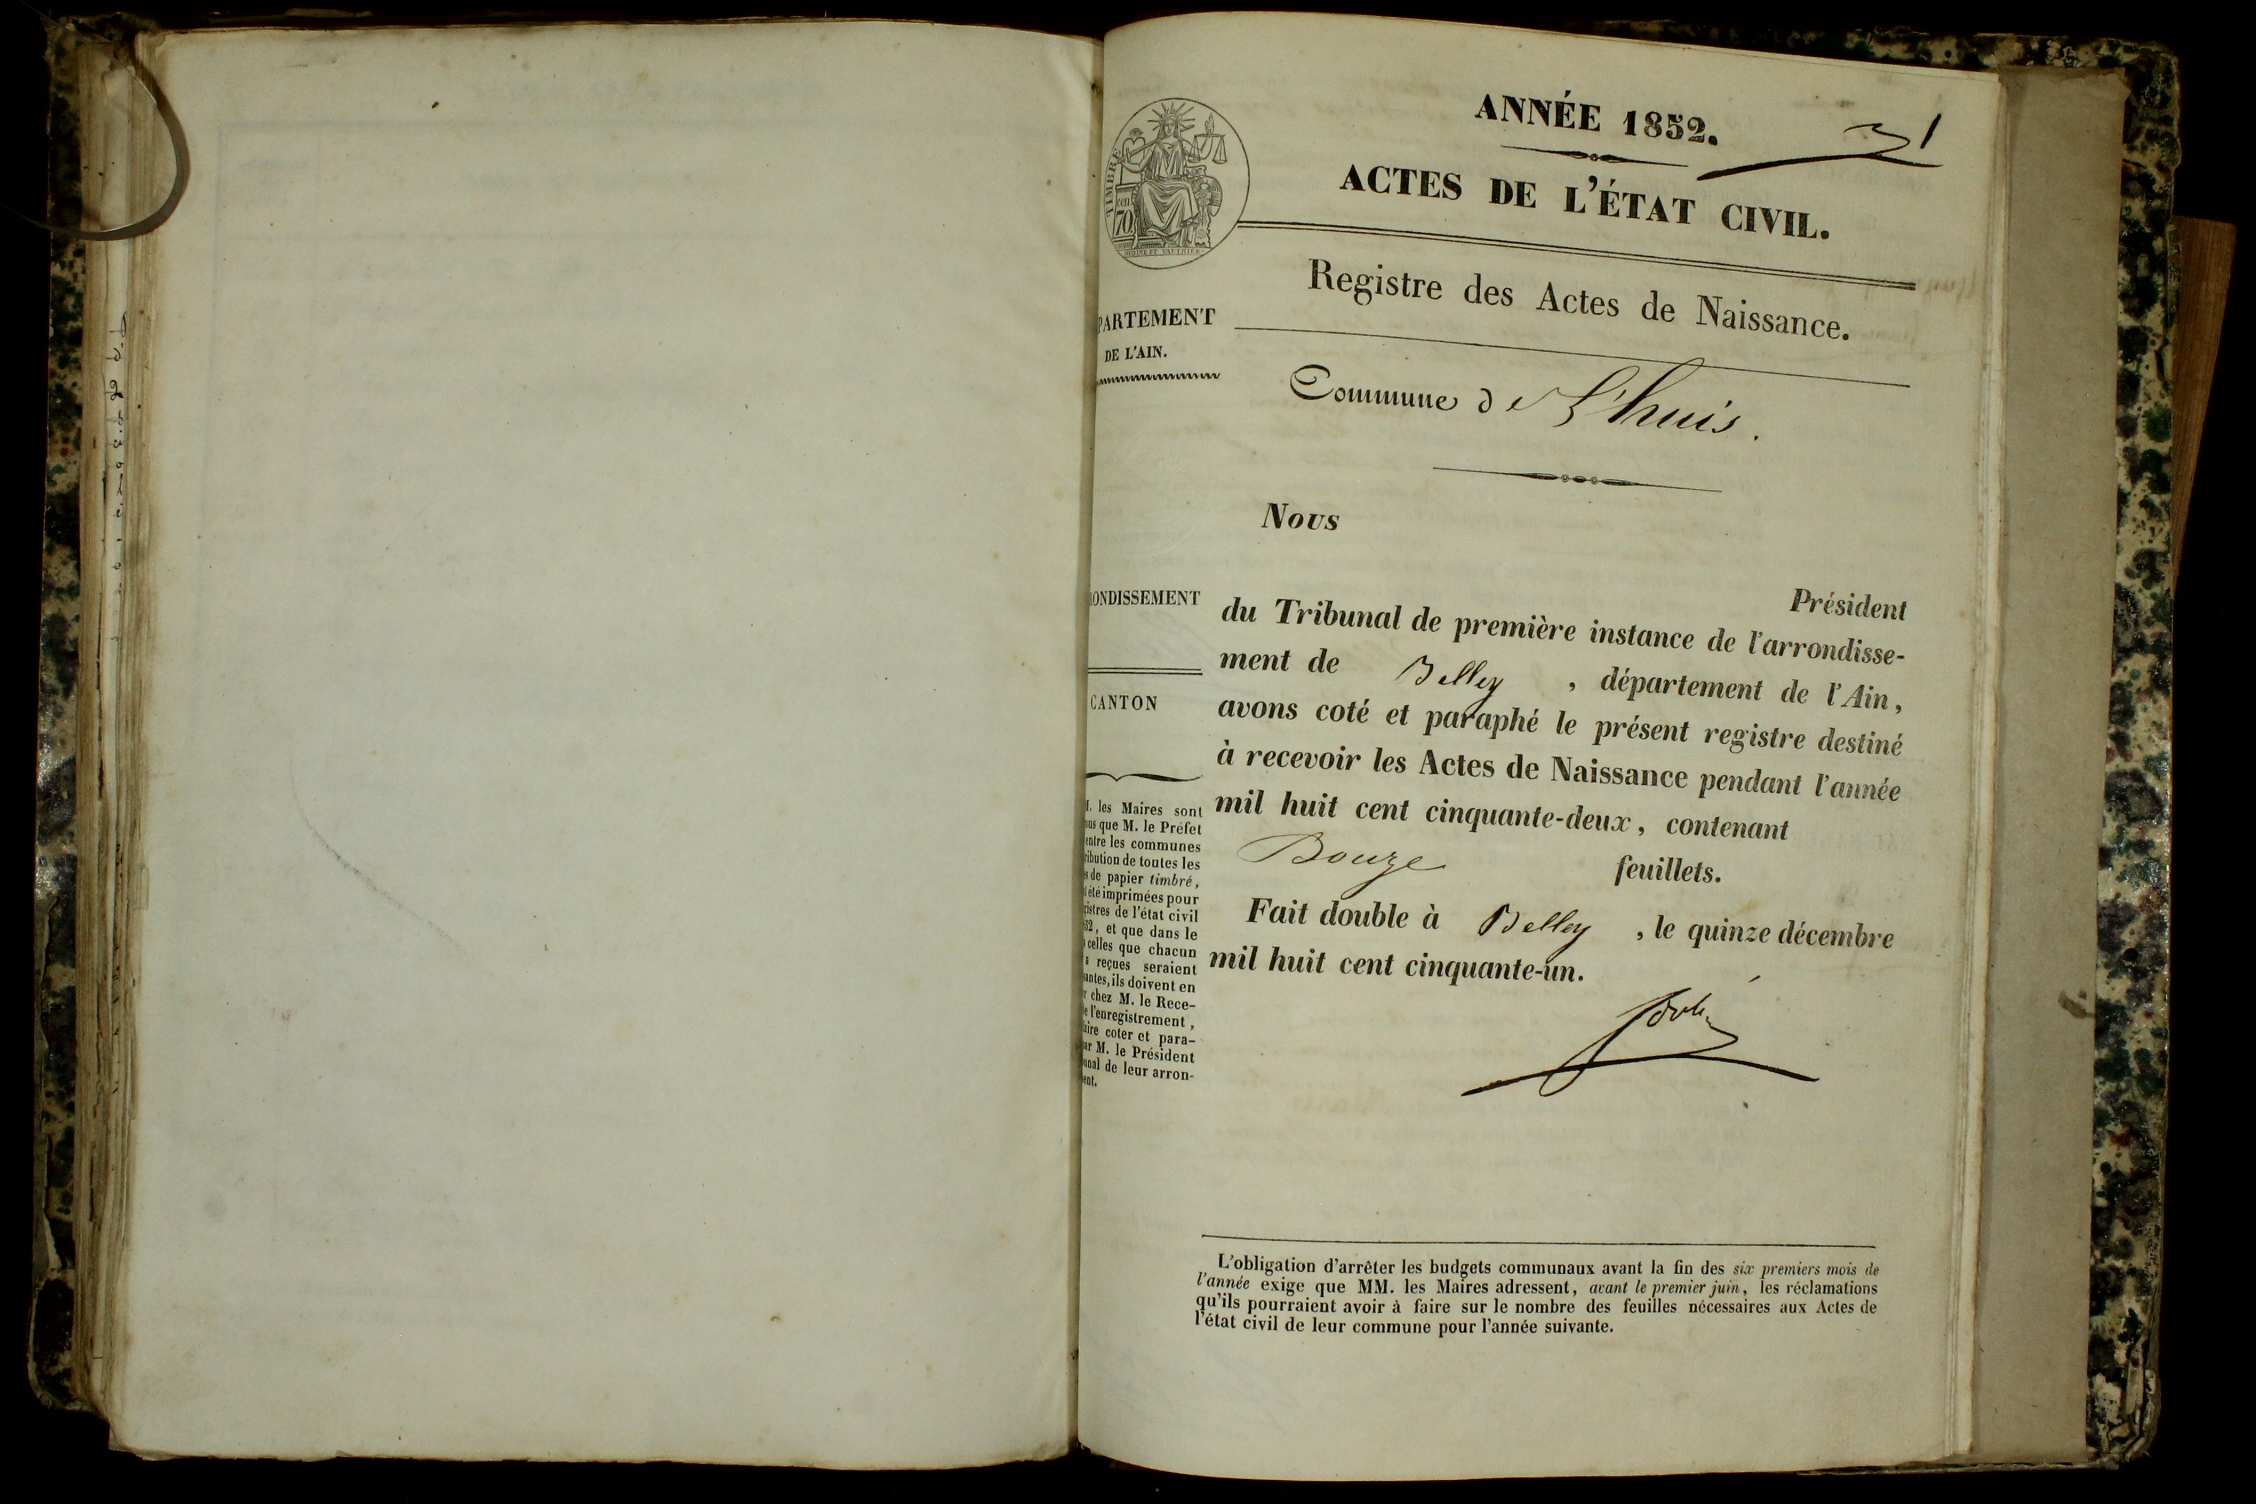 ANNÉE 1852.
1
ACTES DE L'ÉTAT CIVIL.
TIMBRE
cen
70
Registre des Actes de Naissance.
PARTEMENT
DE L'AIN.
Commune de L'huis.
Nous
Président
ONDISSEMENT
du Tribunal de première instance de l'arrondisse-
ment de Belley , département de l'Ain,
CANTON
avons coté et paraphé le présent registre destiné
à recevoir les Actes de Naissance pendant l'année
mil huit cent cinquante-deux, contenant
Bouze feuillets.
Fait double à Belley , le quinze décembre
mil huit cent cinquante-un.
les Maires sont
us que M. le Préfet
entre les communes
ribution de toutes les
s de papier timbré,
t été imprimées pour
istres de l'état civil
52, et que dans le
celles que chacun
a reçues seraient
antes, ils doivent en
r chez M. le Rece-
e l'enregistrement,
aire coter et para-
ar M. le Président
unal de leur arron-
ent.
L'obligation d'arrêter les budgets communaux avant la fin des six premiers mois de
l'année exige que MM. les Maires adressent, avant le premier juin, les réclamations
qu'ils pourraient avoir à faire sur le nombre des feuilles nécessaires aux Actes de
l'état civil de leur commune pour l'année suivante.